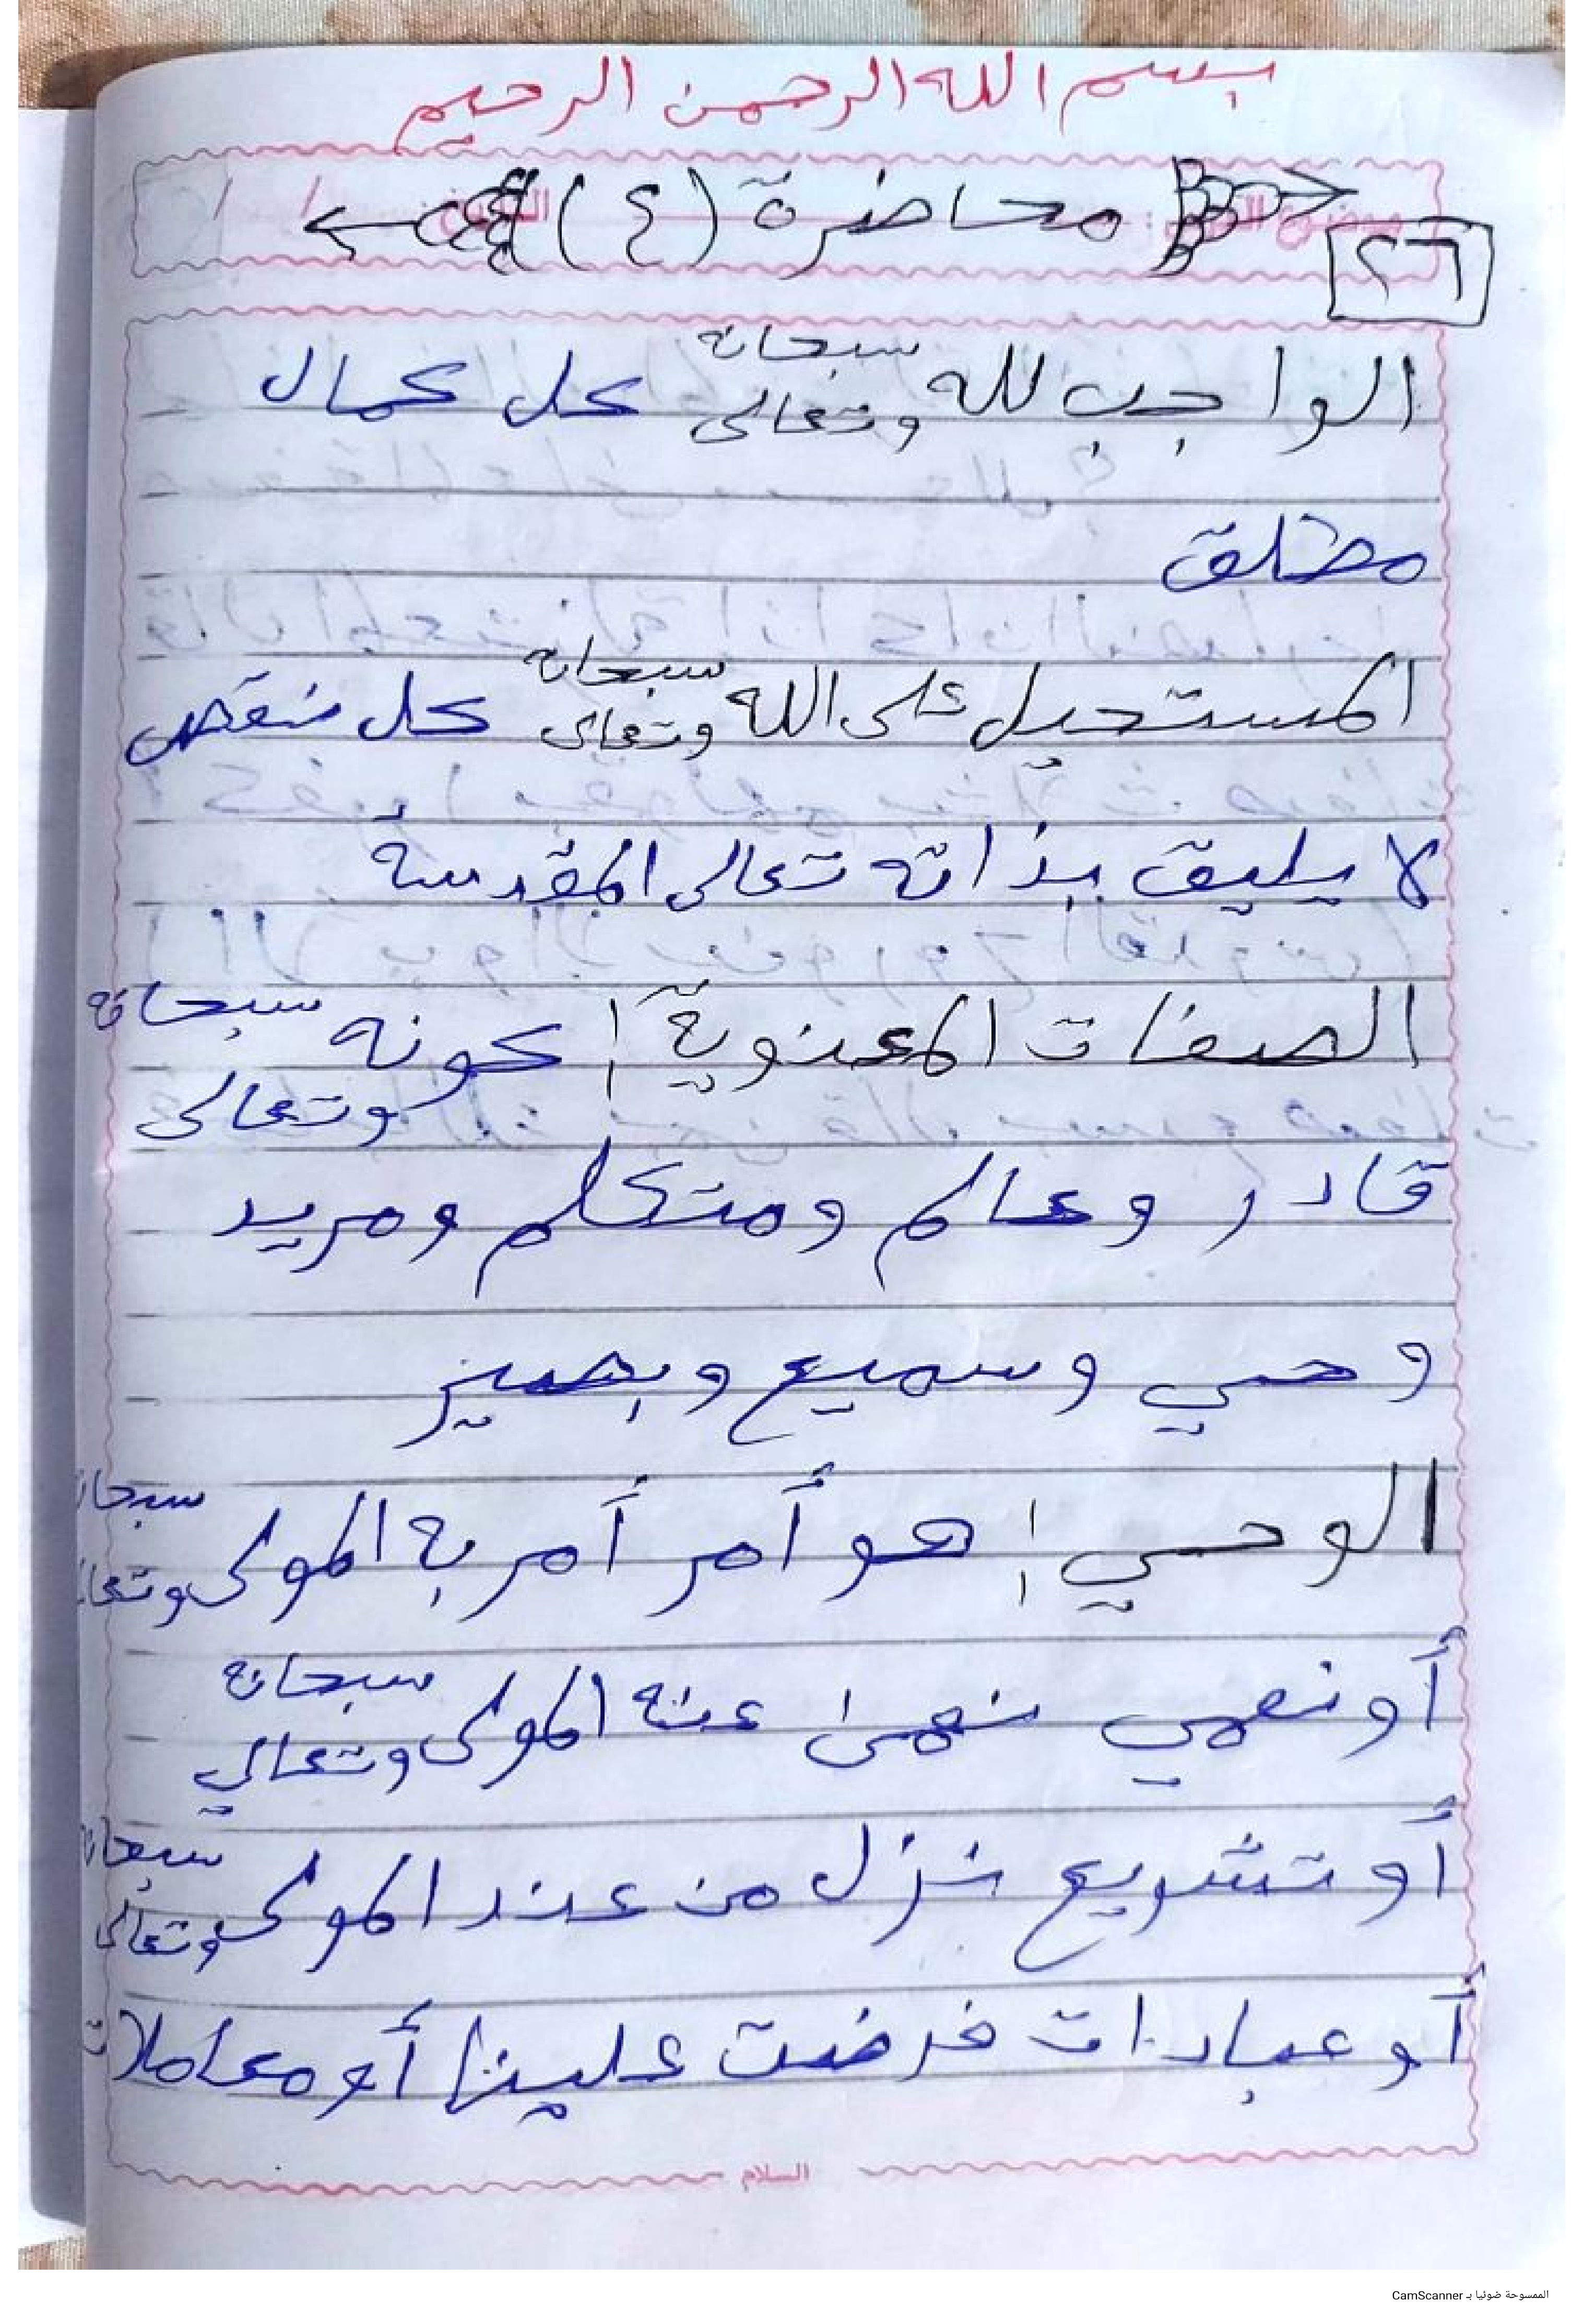 بسم الله الرحمن الرحيم
محاضرة (٤)
٢٦
الواجب لله سبحانه وتعالى كل كمال
مطلق
المستحيل على الله سبحانه وتعالى كل نقص
لا يليق بذاته تعالى المقدسة
الصفات المعنوية: كونه سبحانه وتعالى
قادر وعالم ومتكلم ومريد
وحي وسميع وبصير
الوحي: هو أمر أمر به المولى سبحانه وتعالى
أو نهي نهى عنه المولى سبحانه وتعالي
أو تشريع نزل من عند المولى سبحانه وتعالى
أو عبادات فرضت علينا أو معاملات
السلام
الممسوحة ضوئيا بـ CamScanner